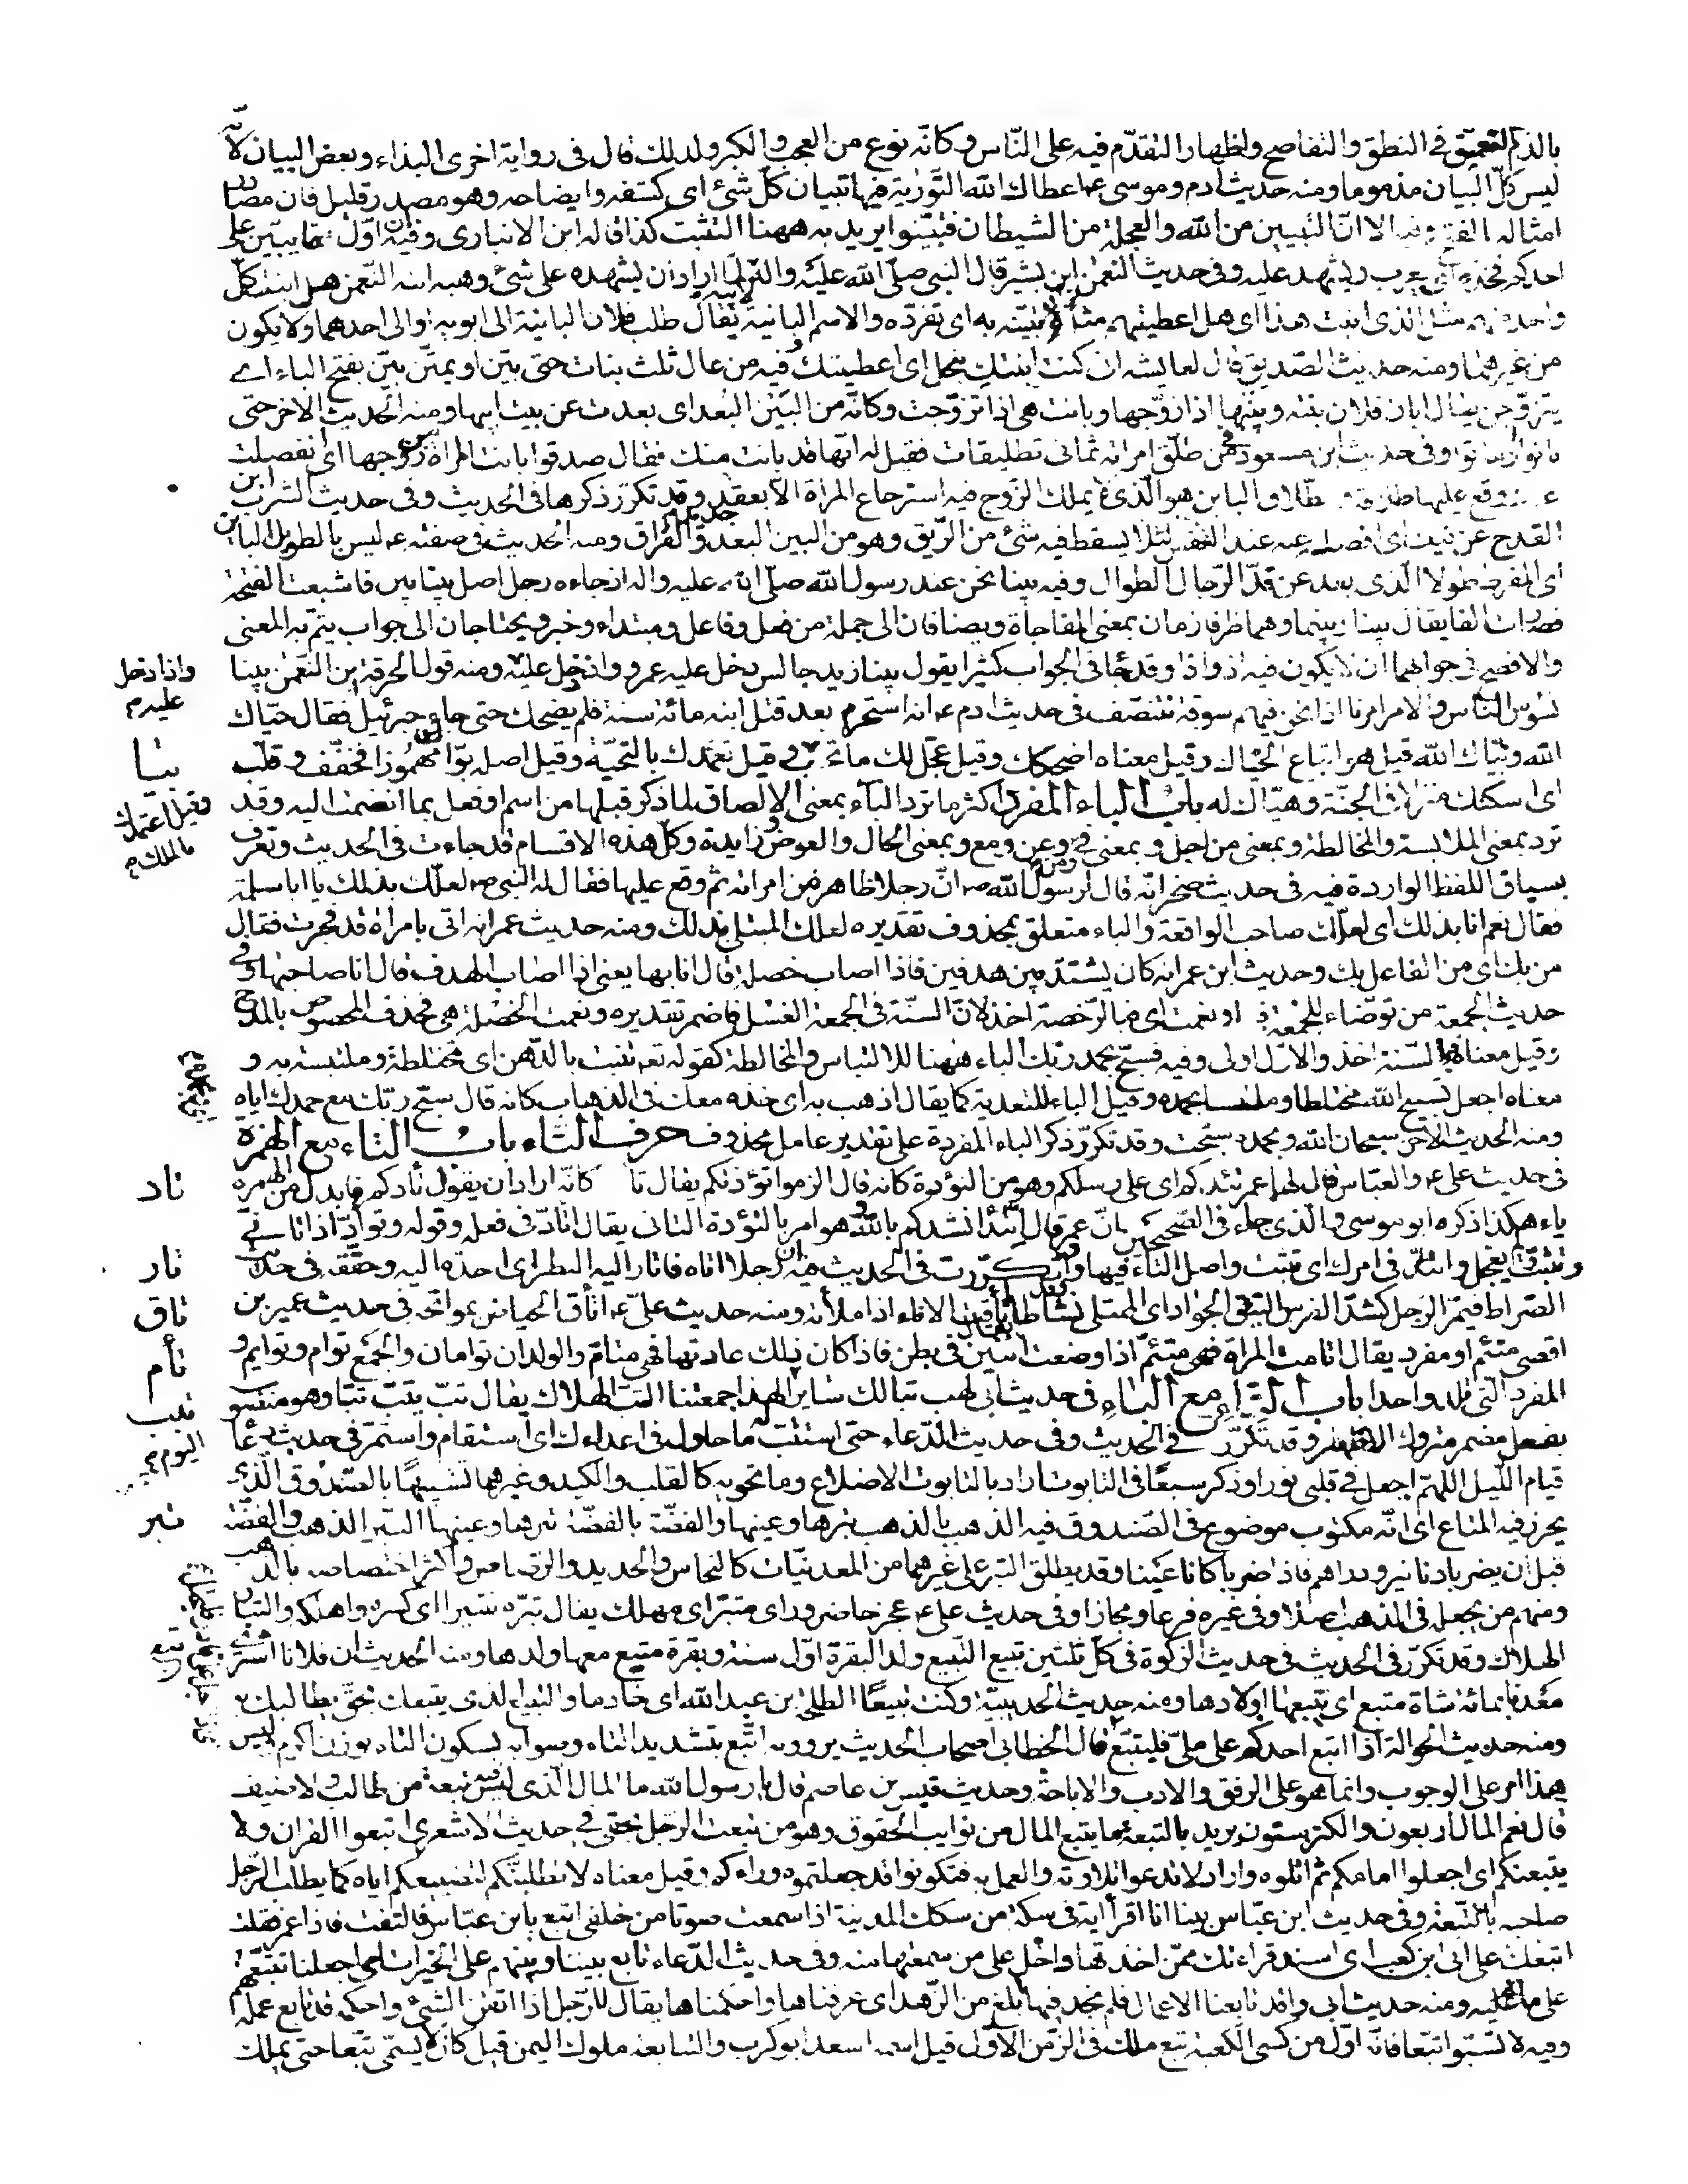 بالذم التعمق في النطق والتفاصح واظهار التقدم فيه على الناس وكانه نوع من العجب والكبر ولذلك قال في رواية اخرى البذاء وبعض البيان لانه
ليس كل البيان مذموما ومنه حديث ادم وموسى ع اعطاك الله التورية فيها تبيان كل شئ اى كشفه وايضاحه وهو مصدر قليل فان مصادر
امثاله بالفتح وفيه الا ان التبيين من الله والعجلة من الشيطان فتبينوا يريد به ههنا التثبت كذا قاله ابن الانبارى وفيه اول ما يبين على
احدكم فخذه اى يعرب ويشهد عليه وفي حديث النعمن ابن بشير قال النبي صلى الله عليه واله لما اراد ان يشهده على شئ وهبه ابنه النعمن هل ابنت كل
واحد منهم مثل الذى ابنت هذا اى هل اعطيتهم مثله تبينه به اى تفرده والاسم البائنة يقال طلب فلان البائنة الى ابويه او الى احدهما ولا يكون
من غيرهما ومنه حديث الصديق قال لعايشه انى كنت ابنتك بنحل اى اعطيتك وفيه من عال ثلث بنات حتى يبن او يمتن يبن بفتح الياء اى
يتزوجن يقال ابان فلان بنته وبينها اذا زوجها وبانت هى اذا تزوجت وكانه من البين البعد اى بعدت عن بيت ابيها ومنه الحديث الاخر حتى
بانوا او ماتوا وفي حديث ابن مسعود فيمن طلق امراته ثمانى تطليقات فقيل له انها قد بانت منك فقال صدقوا بانت المراة من زوجها اى انفصلت
عنه ووقع عليها طلاقه والطلاق البائن هو الذى لا يملك الزوج فيه استرجاع المراة الا بعقد جديد وقد تكرر ذكرها في الحديث وفي حديث الشرب ابن
القدح عن فيك اى افصله عنه عند التنفس لئلا يسقط فيه شئ من الريق وهو من البين البعد والفراق ومنه الحديث في صفته ع ليس بالطويل البائن
اى المفرط طولا الذى بعد عن قد الرجال الطوال وفيه بينا نحن عند رسول الله صلى الله عليه واله اذ جاءه رجل اصل بينا بين فاشبعت الفتحة
فصارت الفا يقال بينا وبينما وهما ظرفا زمان بمعنى المفاجاة ويضافان الى جملة من فعل وفاعل ومبتداء وخبر ويحتاجان الى جواب يتم به المعنى
والافصح في جوابهما ان لا يكون فيه اذ واذا وقد جاءا في الجواب كثيرا يقول بينا زيد جالس دخل عليه عمرو واذ دخل عليه ومنه قول الحرقة بن النعمن بينا
واذا دخل
عليه م
نسوس الناس والامر امرنا اذا نحن فيهم سوقة نتنصف في حديث ادم ع انه استحرم بعد قتل ابنه مائة سنة فلم يضحك حتى جاءه جبرئيل فقال حياك
الله وبياك الله قيل هو اتباع لحياك وقيل معناه اضحكك وقيل عجل لك ما تحب وقيل تعمدك بالتحية وقيل اصله بوأ مهموزا فخفف وقلب
بيا
اى اسكنك منزلا في الجنة وهياك له باب الباء المفردة اكثر ما ترد الباء بمعنى الالصاق لما ذكر قبلها من اسم او فعل بما انضمت اليه وقد
وقيل اعتمدك
بالملك م
ترد بمعنى الملابسة والمخالطة وبمعنى من اجل وبمعنى في وعن ومن ومع وبمعنى الحال والعوض وزايدة وكل هذه الاقسام قد جاءت في الحديث وتعرف
بسياق اللفظ الواردة فيه في حديث صخر انه قال لرسول الله ص ان رجلا ظاهر من امراته ثم وقع عليها فقال له النبي ص لعلك بذلك يا ابا سلمة
فقال نعم انا بذلك اى لعلك صاحب الواقعة والباء متعلق بمحذوف تقديره لعلك المبتلى بذلك ومنه حديث عمر انه اتى بامراة قد فجرت فقال
من بك اى من الفاعل بك وحديث ابن عمر انه كان يشتد بين هدفين فاذا اصاب خصلة قال انا بها يعنى اذا اصاب الهدف قال انا صاحبها وفي
حديث الجمعة من توضاء للجمعة فبها ونعمت اى فبالرخصة اخذ لان السنة في الجمعة الغسل فاضمر تقديره ونعمت الخصلة هى فحذف المخصوص بالمدح
وقيل معناه فبالسنة اخذ والاول اولى وفيه فسبح بحمد ربك الباء ههنا للالتباس والمخالطة كقوله تعه تنبت بالدهن اى مختلطة وملتبسة به و
معناه اجعل تسبيح الله مختلطا وملتبسا بحمده وقيل الباء للتعدية كما يقال اذهب به اى خذه معك في الذهاب كانه قال سبح ربك مع حمدك اياه
ومنه الحديث الاخر سبحان الله وبحمده اى بحمده سبحت وقد تكرر ذكر الباء المفردة على تقدير عامل محذوف حرف التاء باب التاء مع الهمزة
في حديث على ع والعباس قال لهما عمر تئدكم اى على رسلكم وهو من التؤدة كانه قال الزموا تؤدتكم يقال تا كانه اراد ان يقول تأدكم فابدل من الهمزة
تاد
ياء هكذا ذكره ابو موسى والذى جاء في الصحيحين ان عمر قال اتئدا انشدكم بالله وهو امر بالتؤدة التانى يقال اتاد في فعله وقوله وتوأد اذا تانى
وتثبت ولم يعجل واتئد في امرك اى تثبت واصل التاء فيها واو وقد تكررت في الحديث فيه ان رجلا اتاه فاتار اليه النظر اى احده اليه وحققه في حديث
تار
الصراط فيمر الرجل كشد الفرس التئق الجواد اى الممتلى نشاطا يقال اتأقت الاناء اذا ملأته ومنه حديث على ع اتأق الحياض بمواتحه في حديث عمير بن
تاق
افصى متئم او مفرد يقال اتامت المراة فهى متئم اذا وضعت اثنين في بطن فاذا كان ذلك عادتها فهى متئام والولدان توامان والجمع توام وتوايم و
تأم
المفرد التى تلد واحدا باب التاء مع الباء في حديث ابى لهب تبا لك سائر اليوم الهذا جمعتنا التب الهلاك يقال تب يتب تبا وهو منصوب
تبب
اليوم م
بفعل مضمر متروك الاظهار وقد تكرر في الحديث وفي حديث الدعاء حتى استتب له ما حاول في اعداءك اى استقام واستمر في حديث دعاء
قيام الليل اللهم اجعل في قلبى نورا وذكر سبعا في التابوت اراد بالتابوت الاضلاع وما تحويه كالقلب والكبد وغيرهما تشبيها بالصندوق الذى
يحرز فيه المتاع اى انه مكتوب موضوع في الصندوق فيه الذهب بالذهب تبرها وعينها والفضة بالفضة تبرها وعينها التبر الذهب والفضة
تبر
قبل ان يضربا دنانير ودراهم فاذا ضربا كانا عينا وقد يطلق التبر على غيرهما من المعدنيات كالنحاس والحديد والرصاص واكثر اختصاصه بالذهب
ومنهم من يجعله في الذهب اصلا وفي غيره فرعا ومجازا وفي حديث على ع عجز حاضر وراى متبر اى مهلك يقال تبره تتبيرا اى كسره واهلكه والتبار
الهلاك وقد تكرر في الحديث في حديث الزكوة في كل ثلثين تبيع التبيع ولد البقرة اول سنة وبقرة متبع معها ولدها ومنه الحديث ان فلانا اشترى
تبع
معدنا بمائة شاة متبع اى يتبعها اولادها ومنه حديث الحديبية وكنت تبيعا لطلحة بن عبيد الله اى خادما والتبيع الذى يتبعك بحق يطالبك به
ومنه حديث الحوالة اذا اتبع احدكم على ملى فليتبع قال الخطابى اصحاب الحديث يروونه اتبع بتشديد التاء وصوابه بسكون التاء بوزن اكرم ليس
هذا امر على الوجوب وانما هو على الرفق والادب والاباحة وحديث قيس بن عاصم قال يا رسول الله ما المال الذى ليس فيه تبعة من طالب ولا ضيف
قال نعم المال اربعون والكثر ستون يريد بالتبعة ما يتبع المال من نوايب الحقوق وهو من تبعت الرجل بحقى في حديث الاشعرى اتبعوا القران ولا
يتبعنكم اى اجعلوا امامكم ثم اتلوه واراد لا تدعوا تلاوته والعمل به فتكونوا قد جعلتموه وراءكم وقيل معناه لا يطلبنكم لتضييعكم اياه كما يطلب الرجل
صاحبه بالتبعة وفي حديث ابن عباس بينا انا اقرأ اية في سكة من سكك المدينة اذ سمعت صوتا من خلفى اتبع يابن عباس فالتفت فاذا عمر فقلت
اتبعك على ابى ابن كعب اى اسند قراءتك ممن اخذتها واحل على من سمعتها منه وفي حديث الدعاء تابع بيننا وبينهم على الخيرات اى اجعلنا نتبعهم
على ما هم عليه ومنه حديث ابى واقد تابعنا الاعمال فلم نجد فيها ابلغ من الزهد اى عرفناها واحكمناها يقال للرجل اذا اتقن الشئ واحكمه قد تابع عمله
وفيه لا تسبوا تبعا فانه اول من كسى الكعبة تبع ملك في الزمن الاول قيل اسمه اسعد ابو كرب والتبابعة ملوك اليمن قيل كان لا يسمى تبعا حتى يملك